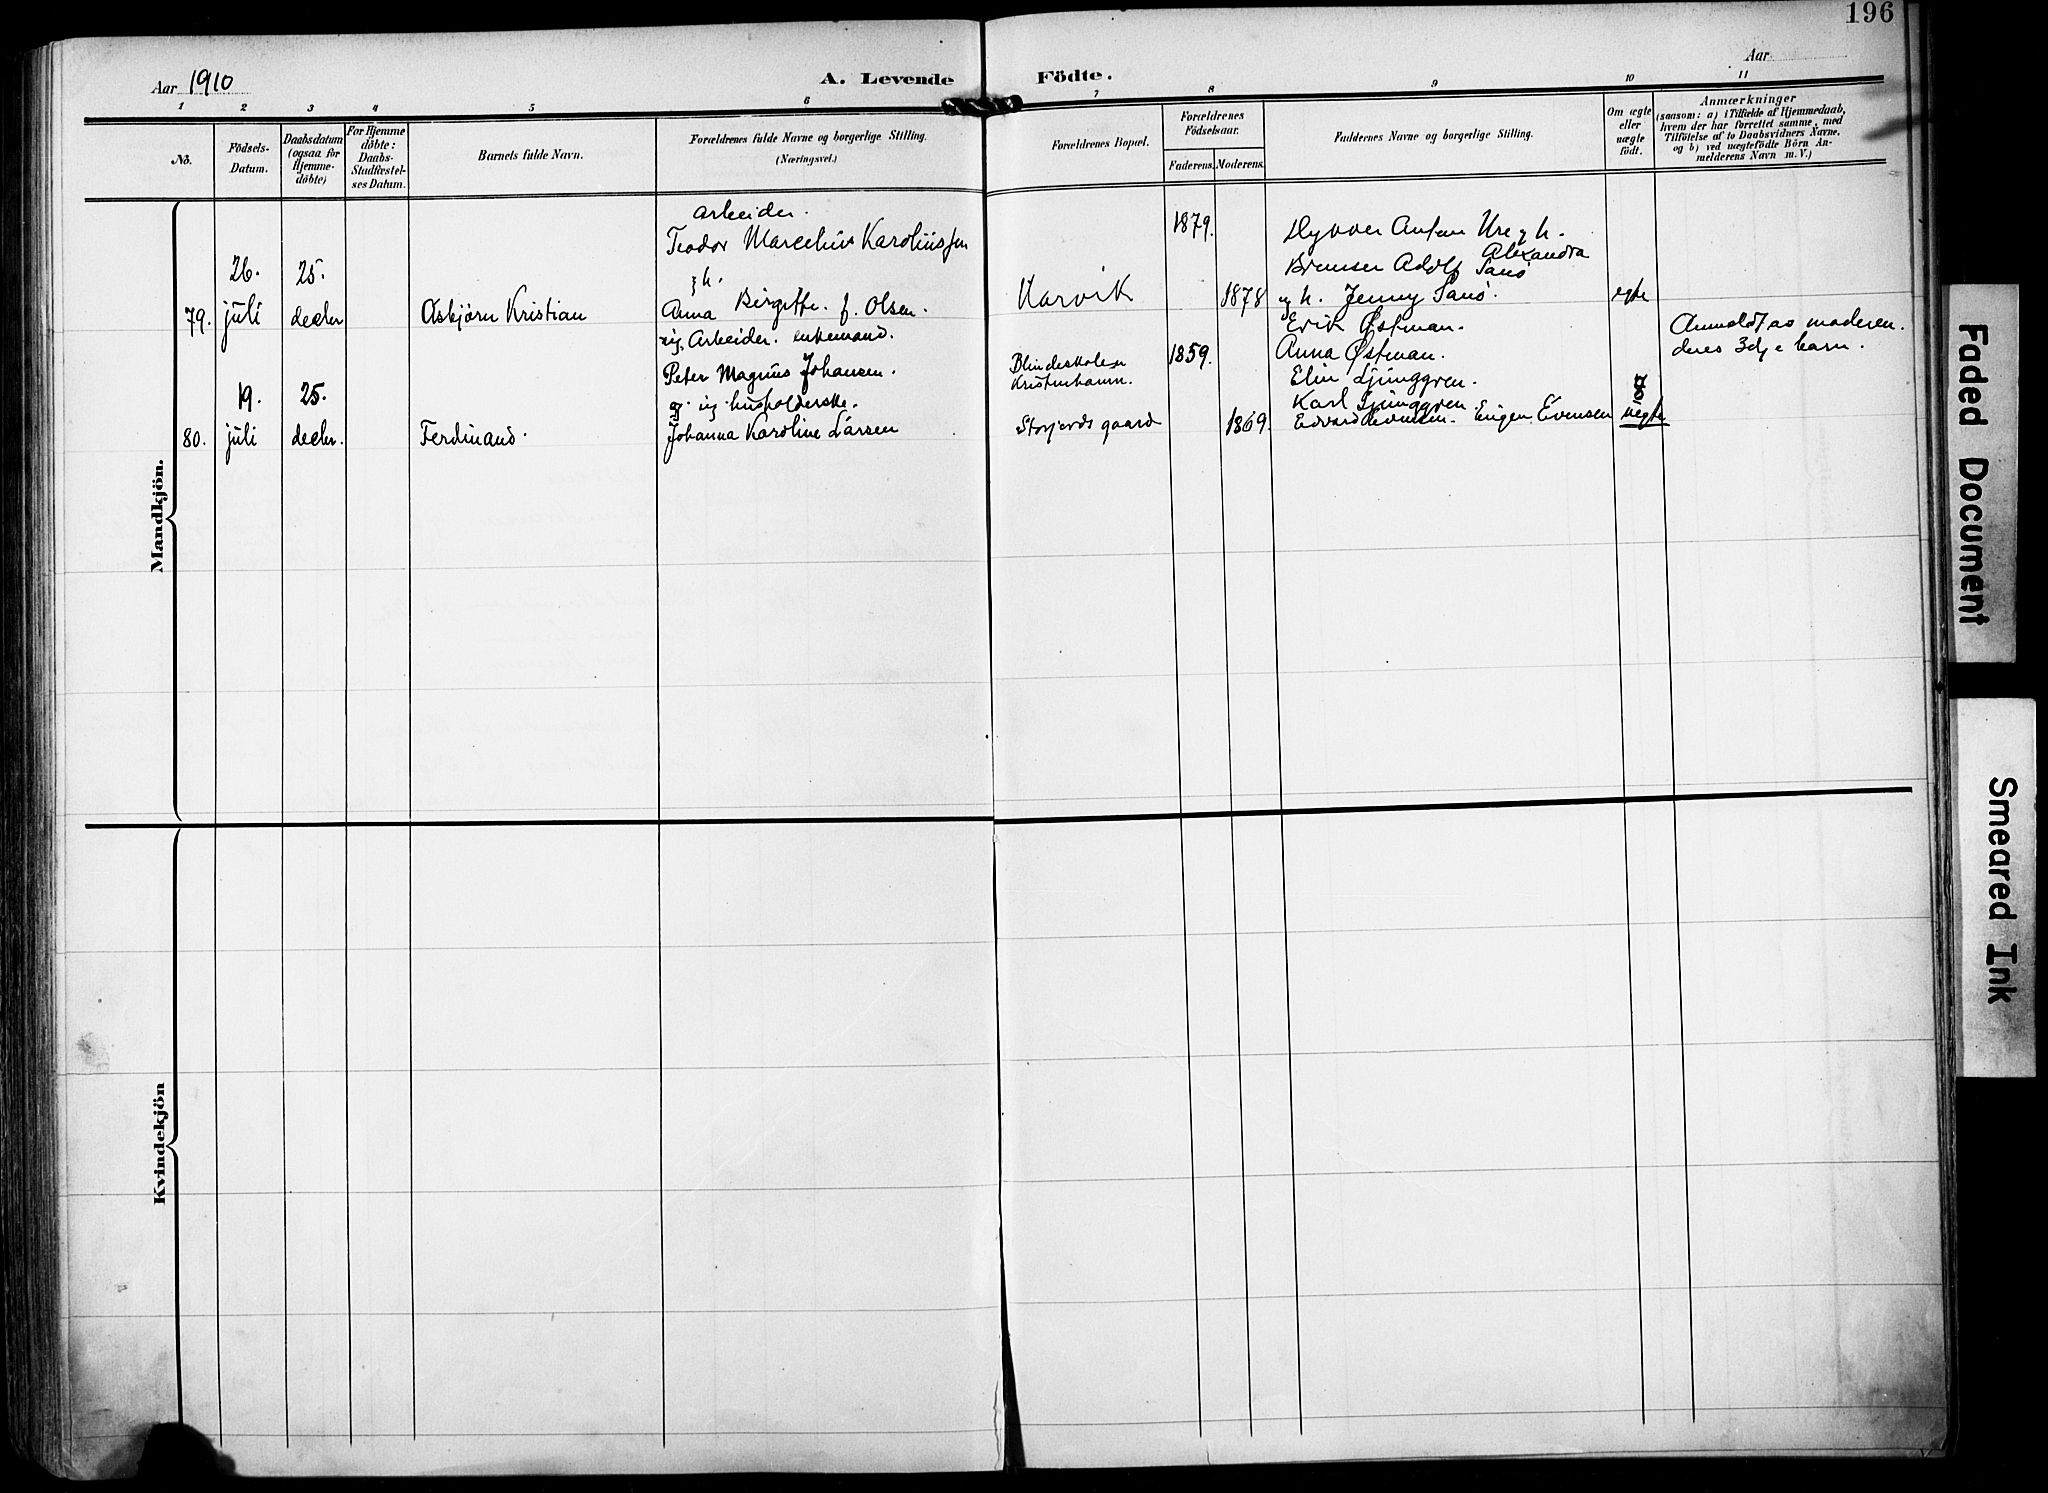 196
Aar 1910
A. Levende Födte.
Aar
1 2 3 4 5 6 7 8 9 10 11
No.
Födsels-
Datum.
Daabsdatum
(ogsaa for
Hjemme-
döbte)
For Hjemme
döbte:
Daabs-
Stadfæstel-
ses Datum.
Barnets fulde Navn.
Forældrenes fulde Navne og borgerlige Stilling.
(Næringsvei.)
Forældrenes Bopæl.
Forældrenes
Födselsaar.
Faderens. Moderens.
Faddernes Navne og borgerlige Stilling.
Om ægte
eller
uægte
födt.
Anmærkninger
(saasom: a) i Tilfælde af Hjemmedaab,
hvem der har forrettet samme, med
Tilföielse af to Daabsvidners Navne,
og b) ved uægtefödte Börn An-
melderens Navn m. V.)
Mandkjön.
79.
26.
juli
25.
decbr
Asbjørn Kristian
Arbeider.
Teodor Marcelius Karoliussen
g h.
Anna Birgitte f. Olsen.
Narvik
1879.
1878
Anton Ure g h.
Bremser Adolf Alexandra
og h. Jenny
egte
80.
19.
juli
25.
decbr.
Ferdinand.
ug. Arbeider. enkemand.
Peter Magnus Johansen.
og ug. husholderske.
Johanna Karoline Larsen
Blindeskolen
Storjords gaard
1859.
1869.
Erik Østman.
Anna Østman.
Elin Ljunggren.
Karl Ljunggren.
Edvard Evensen. Eugen Evensen
uegte
Anmeldt av moderen.
deres 3dje barn.
Kvindekjön
Faded Document
Smeared Ink